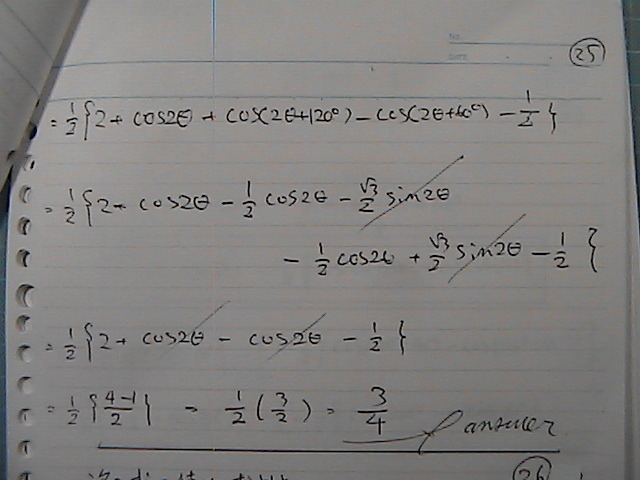 No.
DATE
25
= 1/2 { 2 + cos2θ + cos(2θ+120°) - cos(2θ+60°) - 1/2 }
= 1/2 { 2 + cos2θ - 1/2 cos2θ - √3/2 sin2θ
- 1/2 cos2θ + √3/2 sin2θ - 1/2 }
= 1/2 { 2 + cos2θ - cos2θ - 1/2 }
= 1/2 { (4-1)/2 } = 1/2 ( 3/2 ) = 3/4 answer
26